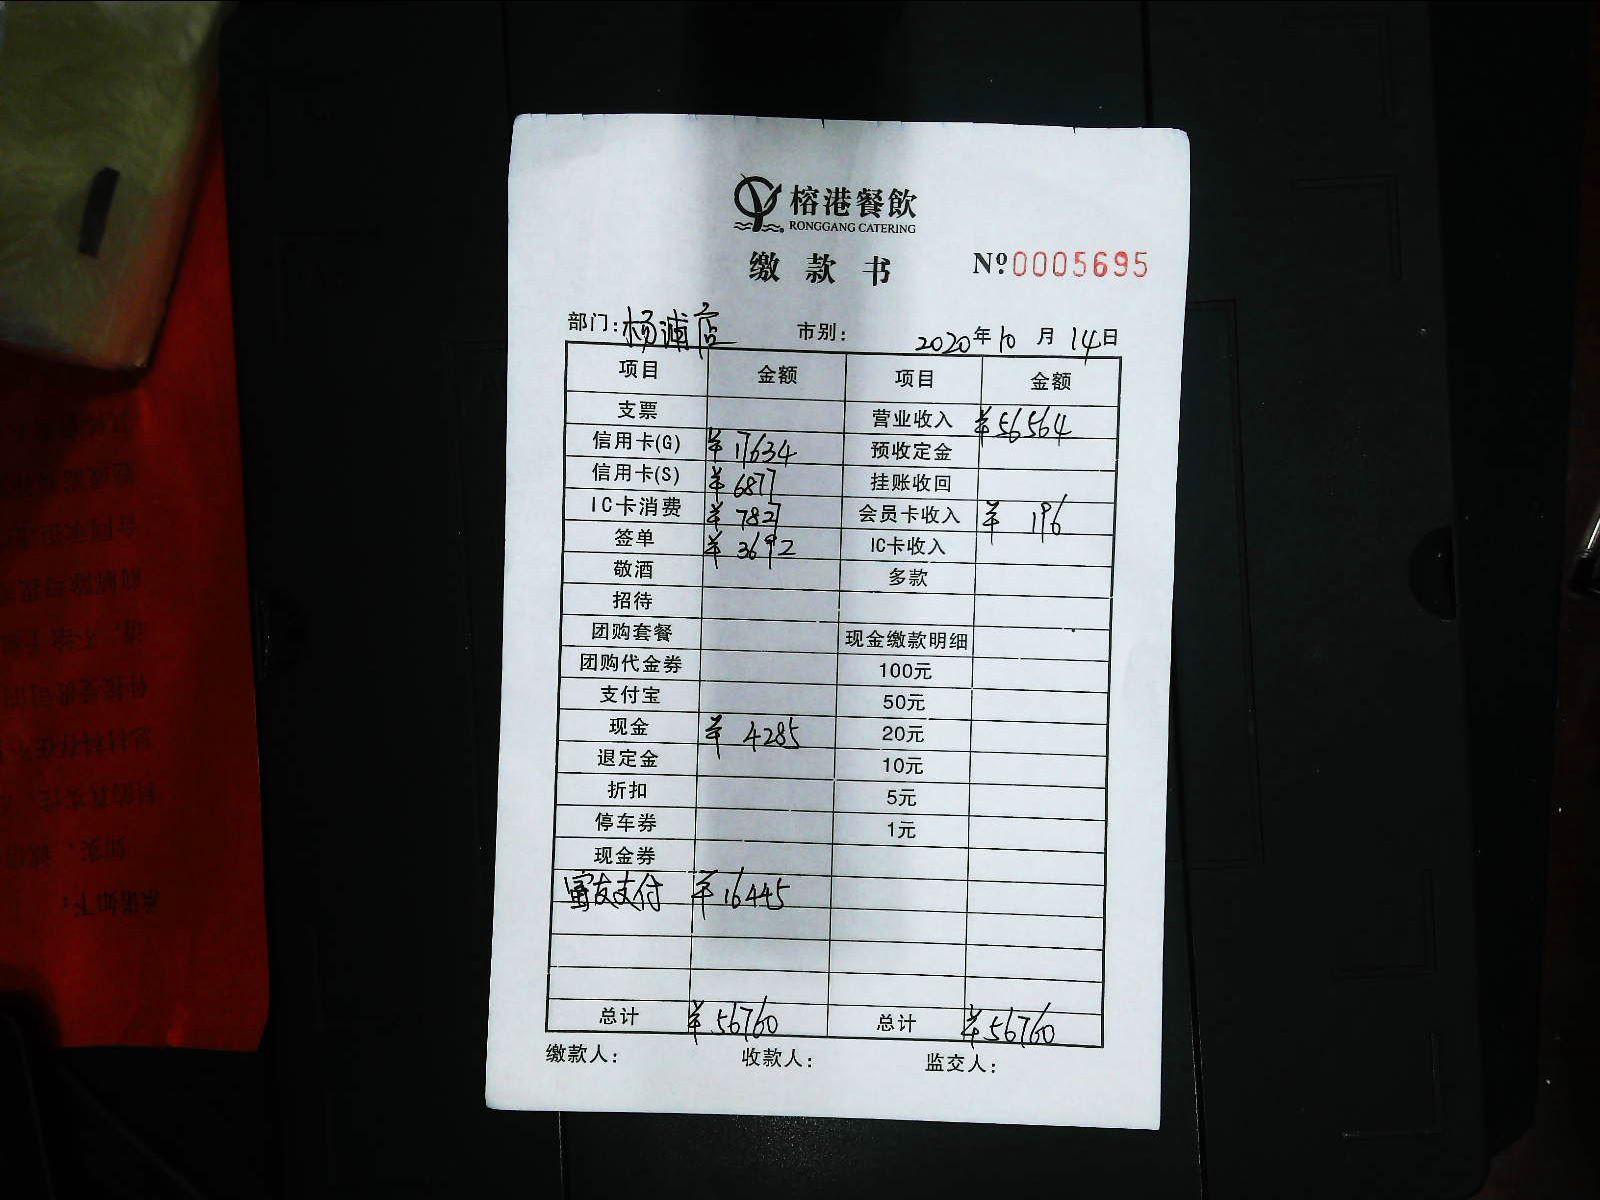 榕港餐飲
RONGGANG CATERING
缴款书 №0005695
部门:杨浦店 市别: 2020年10月14日
项目 金额 项目 金额
支票 营业收入 ¥56564
信用卡(G) ¥17634 预收定金
信用卡(S) ¥6877 挂账收回
IC卡消费 ¥7827 会员卡收入 ¥196
签单 ¥3692 IC卡收入
敬酒 多款
招待
团购套餐 现金缴款明细
团购代金券 100元
支付宝 50元
现金 ¥4285 20元
退定金 10元
折扣 5元
停车券 1元
现金券
富友支付 ¥16445
总计 ¥56760 总计 ¥56760
缴款人: 收款人: 监交人: